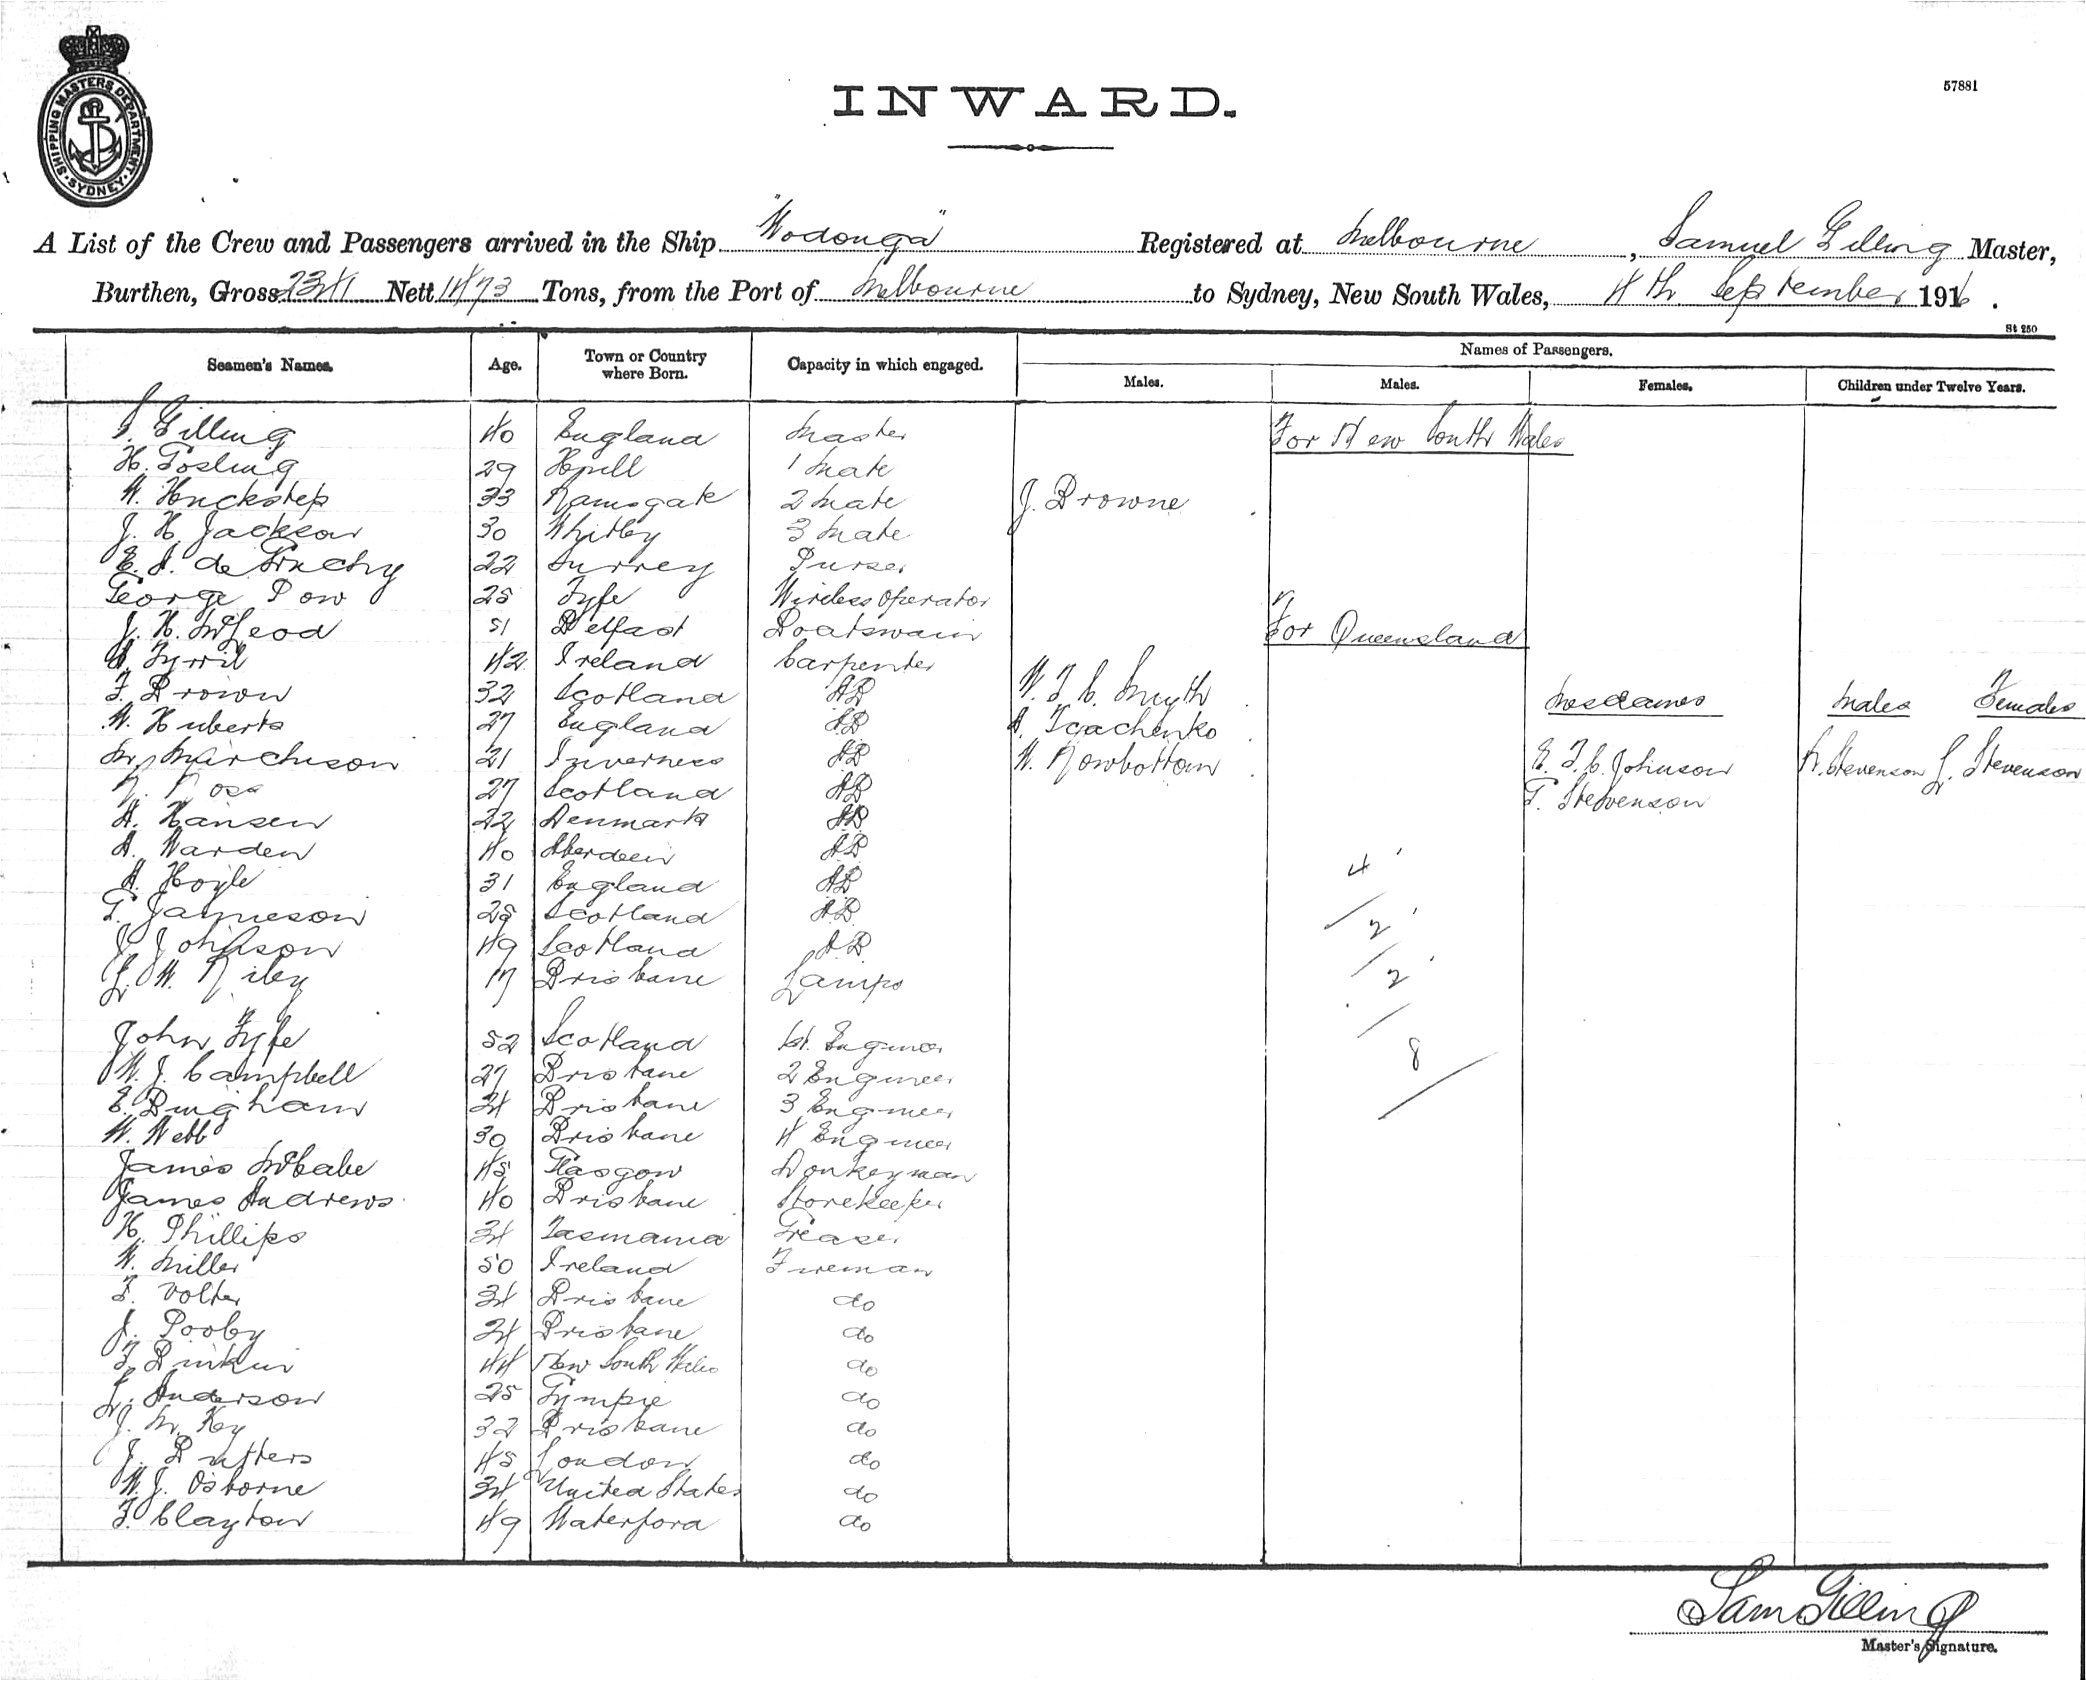 SHIPPING MASTERS DEPARTMENT SYDNEY
INWARD.
57881
A List of the Crew and Passengers arrived in the Ship "Wodonga" Registered at Melbourne, Samuel Gilling Master,
Burthen, Gross 2341 Nett 1473 Tons, from the Port of Melbourne to Sydney, New South Wales, 4th September 1916.
St 250
Seamen's Names. Age. Town or Country where Born. Capacity in which engaged. Names of Passengers.
Males. Males. Females. Children under Twelve Years.
S. Gilling 40 England Master For New South Wales
H. Gosling 29 Hull 1 Mate
W. Huckstep 33 Ramsgate 2 Mate J. Browne
J. H. Jackson 30 Whitby 3 Mate
E. J. de Fruchy 22 Surrey Purser
George Pow 25 Fyfe Wireless Operator
J. H. McLeod 51 Belfast Boatswain For Queensland
Tyrril 42 Ireland Carpenter
F. Brown 32 Scotland AB W. F. C. Smyth Mesdames Males Females
W. Huberts 27 England AB A. Tcachenko
M. Murchison 21 Inverness AB W. Rowbottom E. F. C. Johnson R. Stevenson L. Stevenson
R. Ross 27 Scotland AB G. Stevenson
A. Hansen 22 Denmark AB
A. Warden 40 Aberdeen AB 4
A. Hoyle 31 England AB
G. Jamieson 28 Scotland AB 2
J. Johnson 49 Scotland A.B
L. W. Riley 17 Brisbane Lamps 2
John Fyfe 52 Scotland 1st. Engineer 8
W. J. Campbell 27 Brisbane 2 Engineer
E. Bingham 24 Brisbane 3 Engineer
W. Webb 30 Brisbane 4 Engineer
James McCabe 45 Glasgow Donkeyman
James Andrews 40 Brisbane Storekeeper
H. Phillips 34 Tasmania Greaser
W. Miller 50 Ireland Fireman
F. Volter 34 Brisbane do
J. Pooby 24 Brisbane do
F. Binkin 44 New South Wales do
L. Anderson 25 Gympie do
J. M. Key 32 Brisbane do
J. Butters 45 London do
W. J. Osborne 34 United States do
F. Clayton 49 Waterford do
Sam Gilling
Master's Signature.